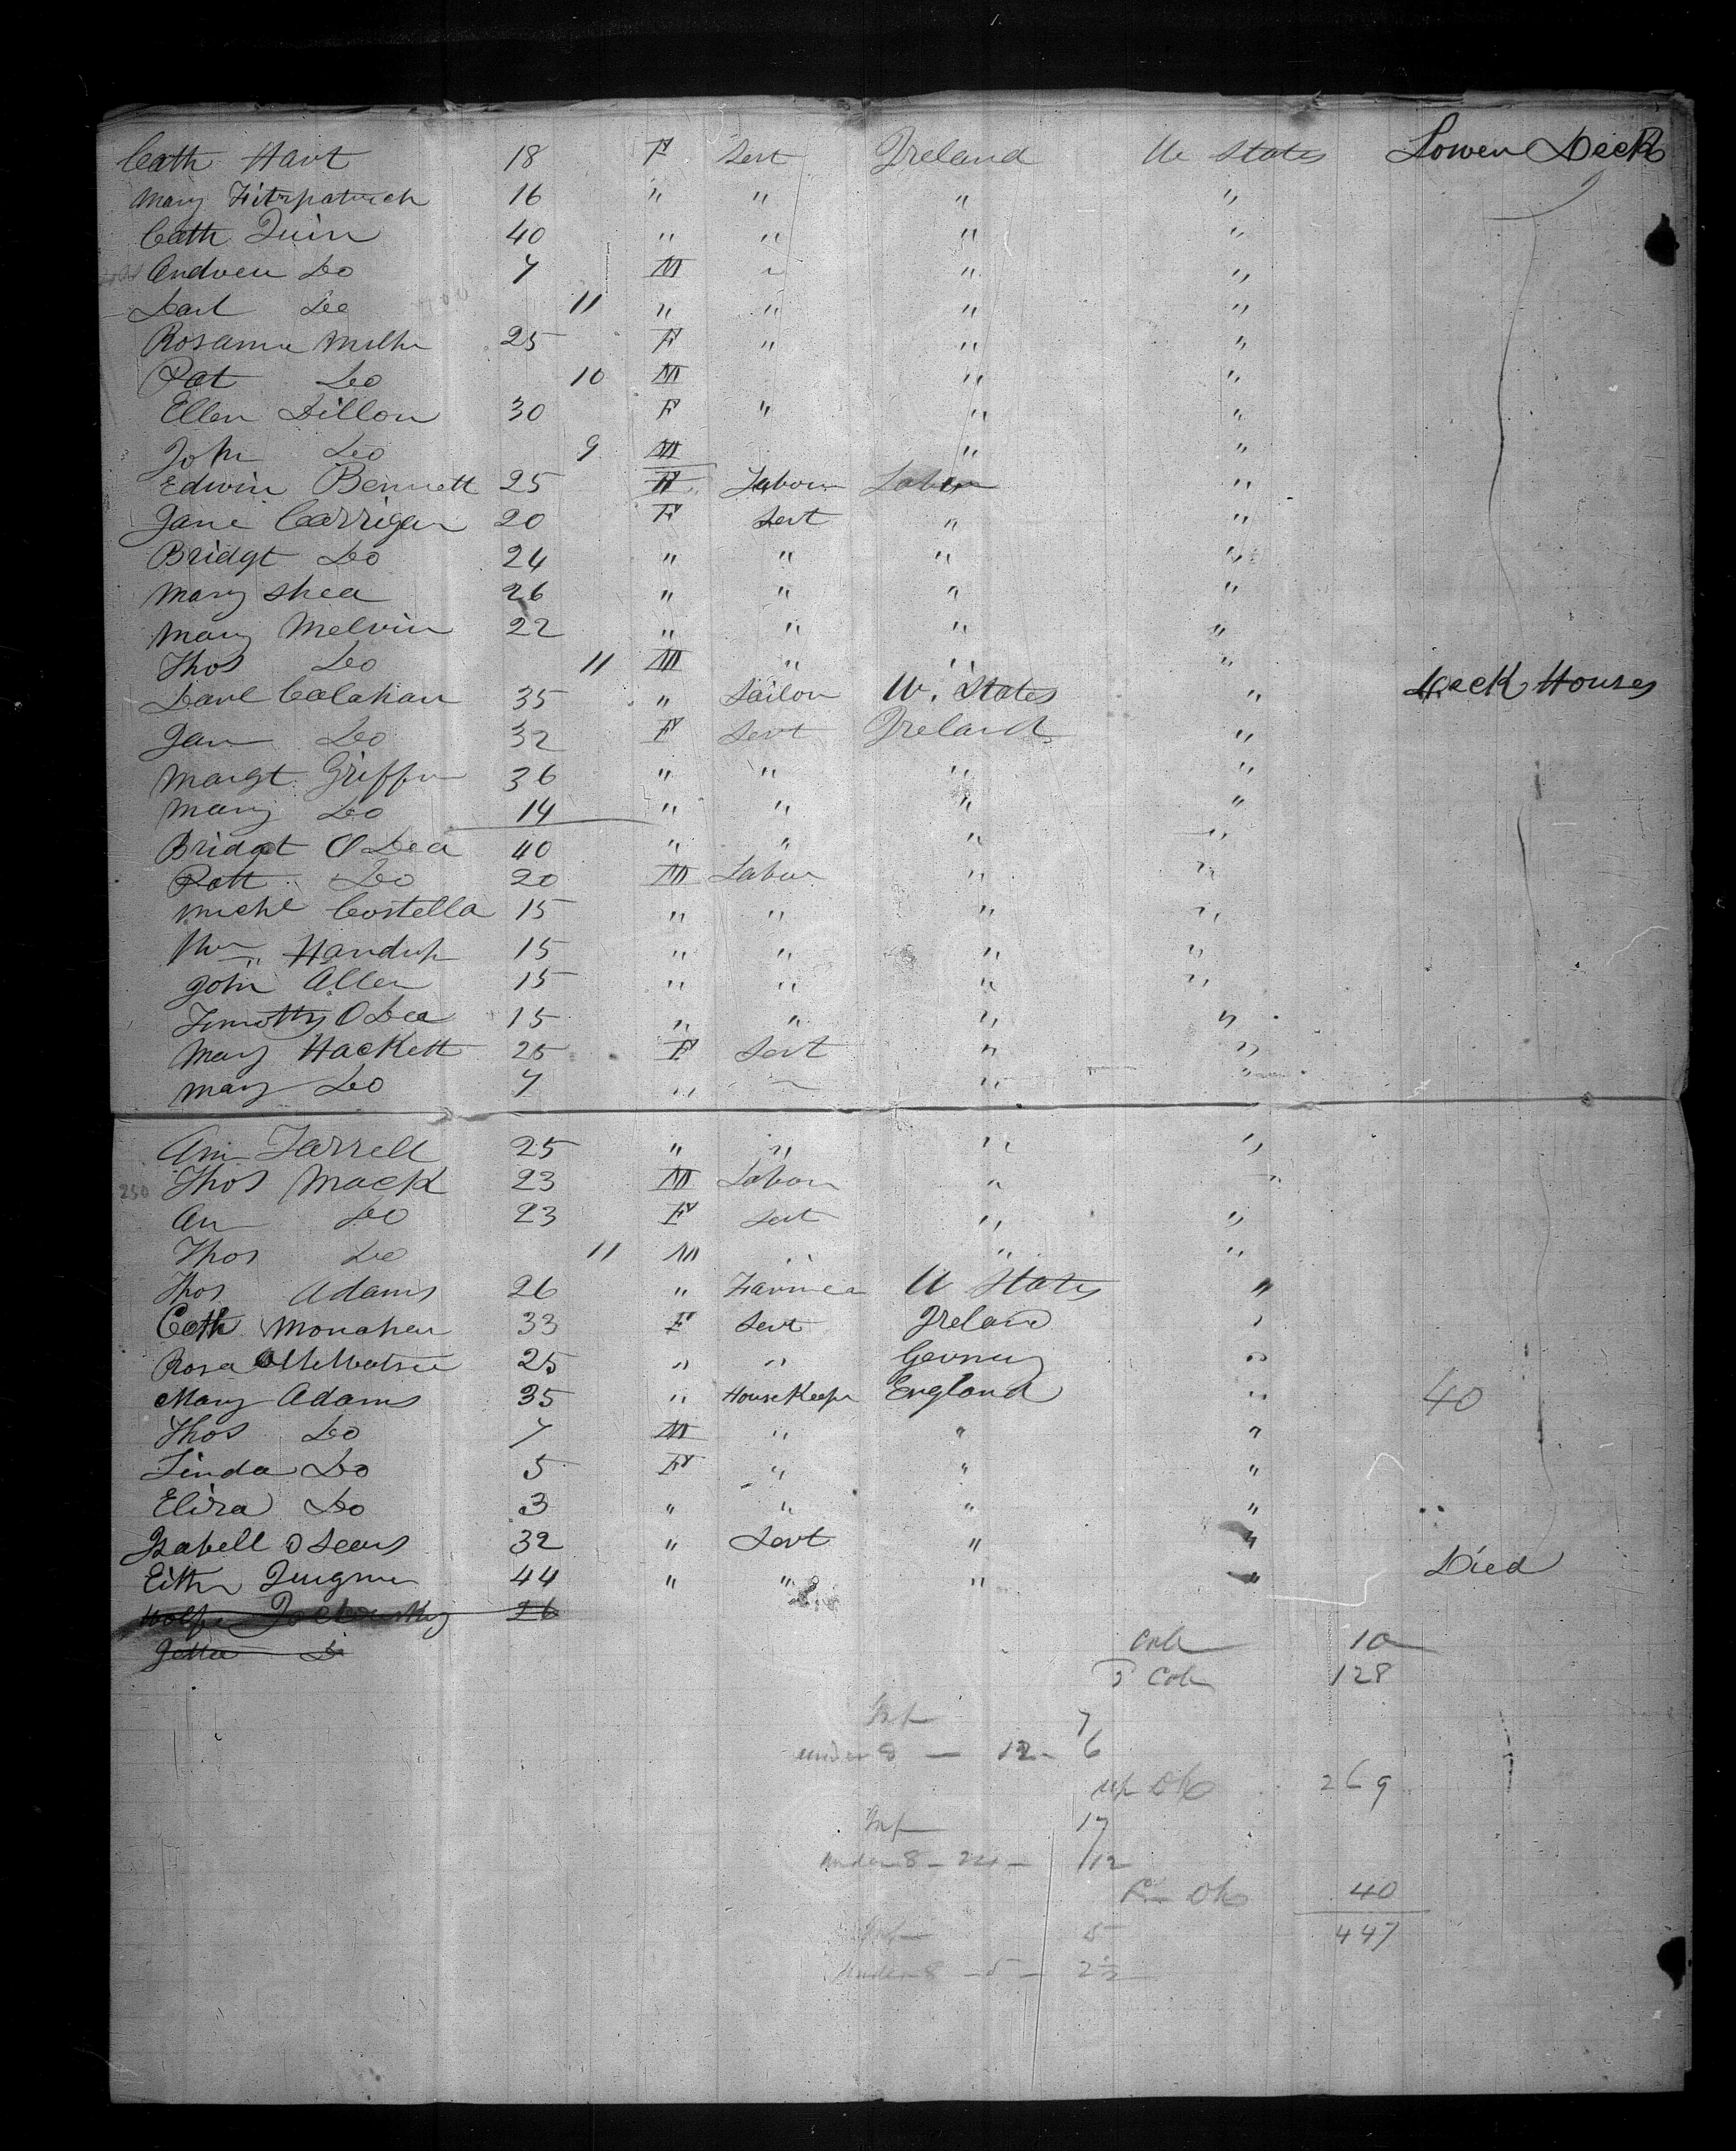 Cath Hart 18 F Sert Ireland U States Lower Deck
Mary Fitzpatrick 16 " " " "
Cath Quin 40 " " " "
Andrew Do 7 M " " "
Danl Do 11 " " " "
Rosanna 25 F " " "
Pat Do 10 M " "
Ellen Dillon 30 F " " "
John Do 9 M " "
Edwin Bennett 25 Labour "
Jane Carrigan 20 F Sert " "
Bridgt Do 24 " " " "
Mary Shea 26 " " " "
Mary Melvin 22 " " " "
Thos Do 11 M " " "
Danl Calahan 35 " Sailor U. States " Deck Houses
Jan Do 32 F Sert Ireland "
Margt Griffin 36 " " " "
Mary Do 14 " " " "
Bridgt O Dea 40 " " " "
Patt Do 20 M Labor " "
Michl Costella 15 " " " "
15 " " " "
John Allen 15 " " " "
Timothy O Dea 15 " " " "
Mary Hackett 25 F Sert " "
Mary Do 7 " " "
Ann Farrell 25 " " " "
250 Thos Mack 23 M Labour " "
An Do 23 F Sert " "
Thos Do 11 M " " "
Thos Adams 26 " Farmer U States "
Cath Monahan 33 F Sert Ireland "
Rosa 25 " " "
Mary Adams 35 " HouseKeepr England " 40
Thos Do 7 M " " "
Linda Do 5 F " " "
Eliza Do 3 " " " "
Isabell 32 " Sert " "
44 " " " " Died
26
10
128
Inf 7
under 8 — 12 - 6
269
Inf 17
under 8 - 24 - 12
40
447
Inf 5
under 8 - 5 - 2½